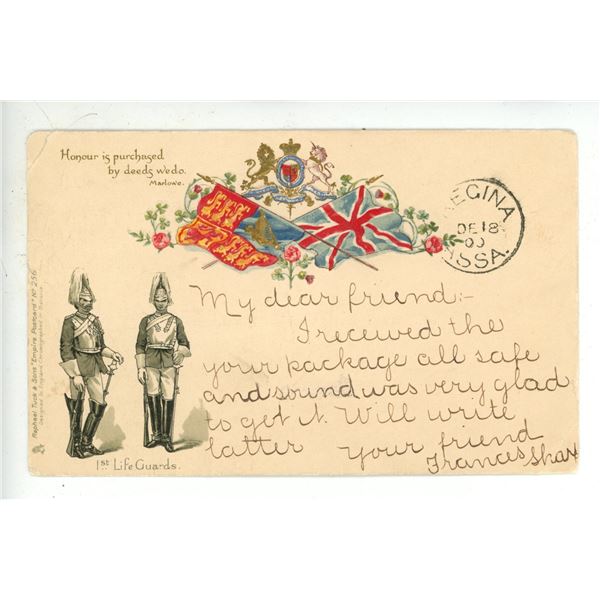 Honour is purchased
by deeds we do.
Marlowe.
REGINA
DE 18
00
ASSA.
My dear friend:-
I received the
your package all safe
and sound was very glad
to get it. Will write
latter Your friend
Frances
1st Life Guards.
Raphael Tuck & Sons' "Empire Postcard" No 256
Designed in England